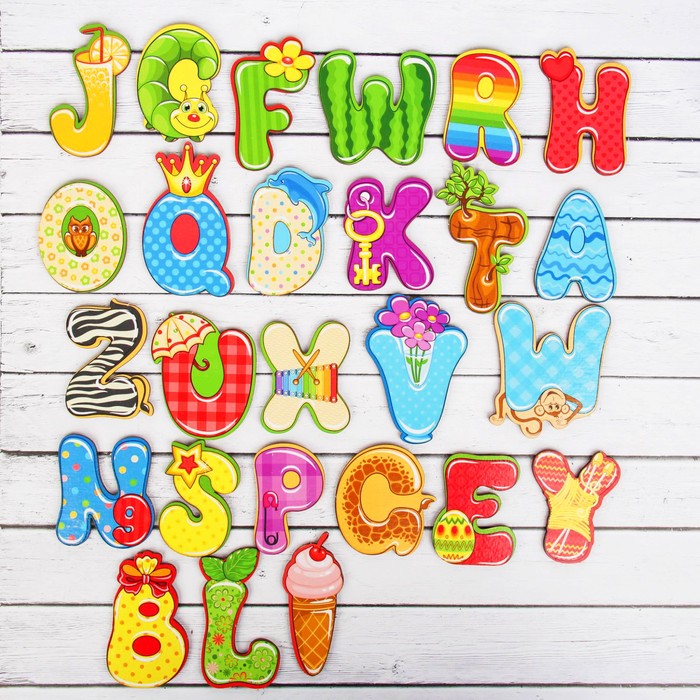 J G F W R H
O Q D K T A
Z U X V W
N 9 S P C E Y
B L I